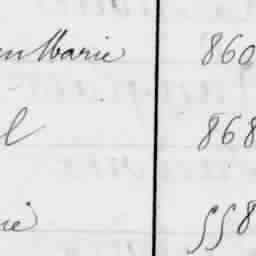 en Marie 860
l 868
ie 558